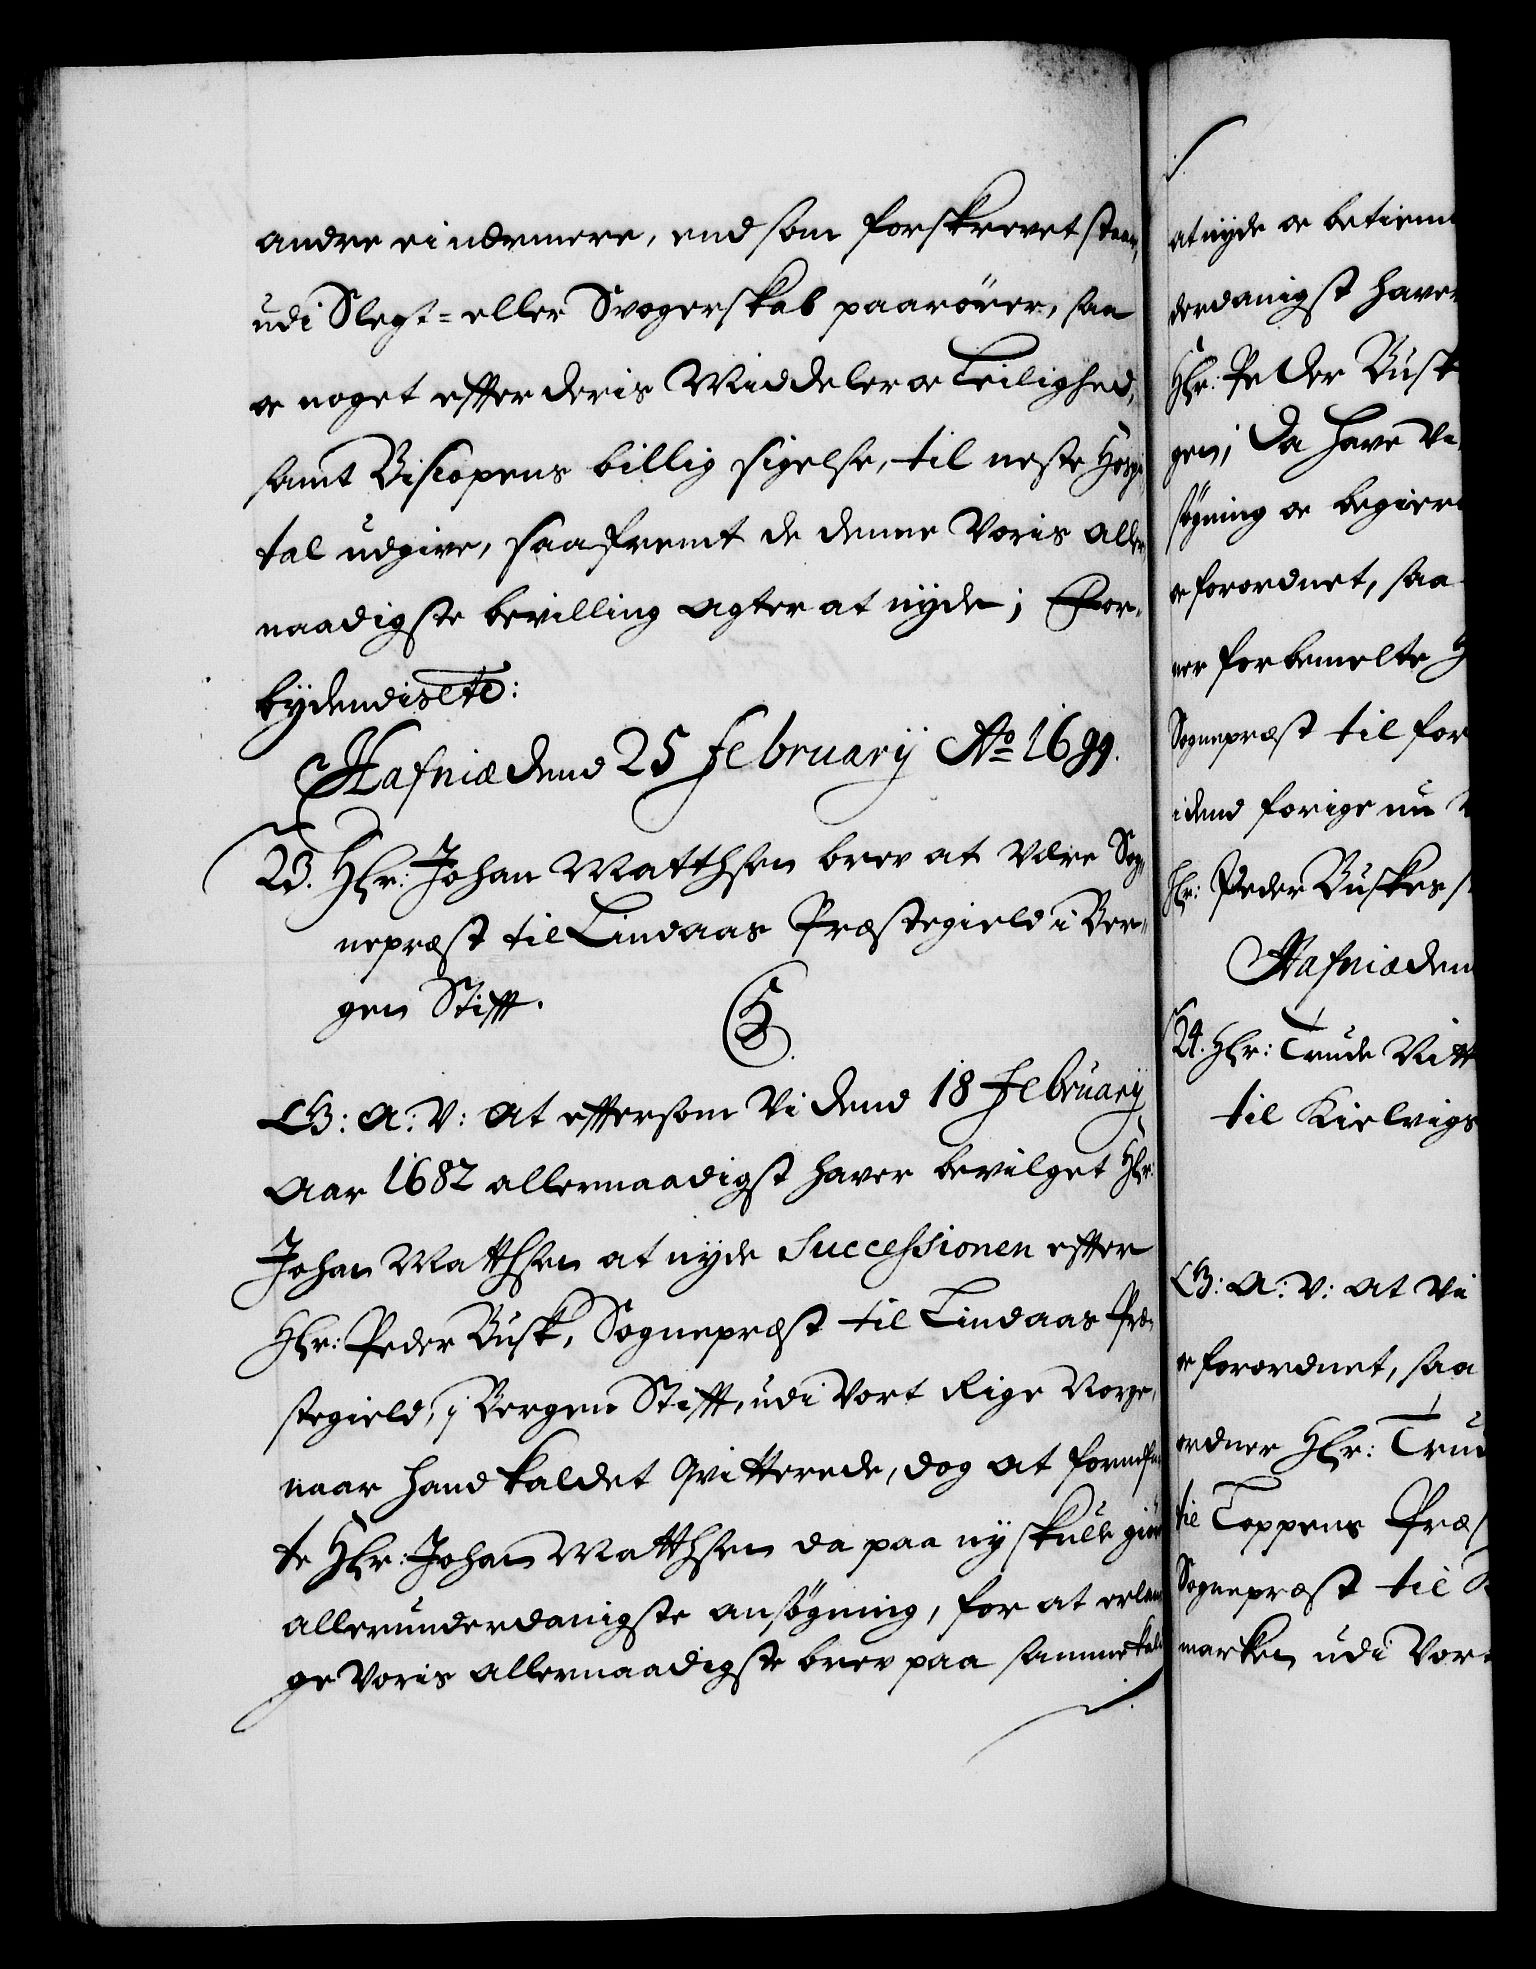 andre ei nærmere, end som forskrevet staar,
udi Slegt= eller Svogerskab paarörer, saa
oc noget effter deris Middeler oc Leilighed,
samt Biscopens billig sigelse, til neste Hospi
tal udgive, saafremt de denne Voris aller
naadigste bevilling agter at nyde; For-
bydendis etc:
Hafniæ dend 25 February Ao 1699.
23. Hr: Johan Matthsen brev at være Sog-
nepræst til Lindaas Præstegield i Ber-
gen Stifft.
G: A: V: at efftersom Vi dend 18 February
Aar 1682 allernaadigst haver bevilget Hr:
Johan Matthsen at nyde Successionen effter
Hr: Peder Busk, Sognepræst til Lindaas Præ-
stegield, i Bergens Stifft, udi Vort Rige Norge,
naar hand kaldet qvitterede, dog at fornefn
te Hr: Johan Matthsen da paa ny skulle giöre
allerunderdanigste ansøgning, for at erlan
ge Voris allernaadigste brev paa samme kald
at nyde oc betiene
derdanigst haver
Hr: Peder Busk
gen; Da have Vi
søgning oc begier
oc forordnet, saa
ner forbemelte H
Sognepræst til for
idend forige nu
Hr: Peder Buskes
Hafniæ den
24. Hr: Trude Nitt
til Kielvigs
G: A: V: at Vi
oc forordnet, saa
ordner Hr: Trud
til Loppens Præs
Sognepræst til K
marken udi Vort